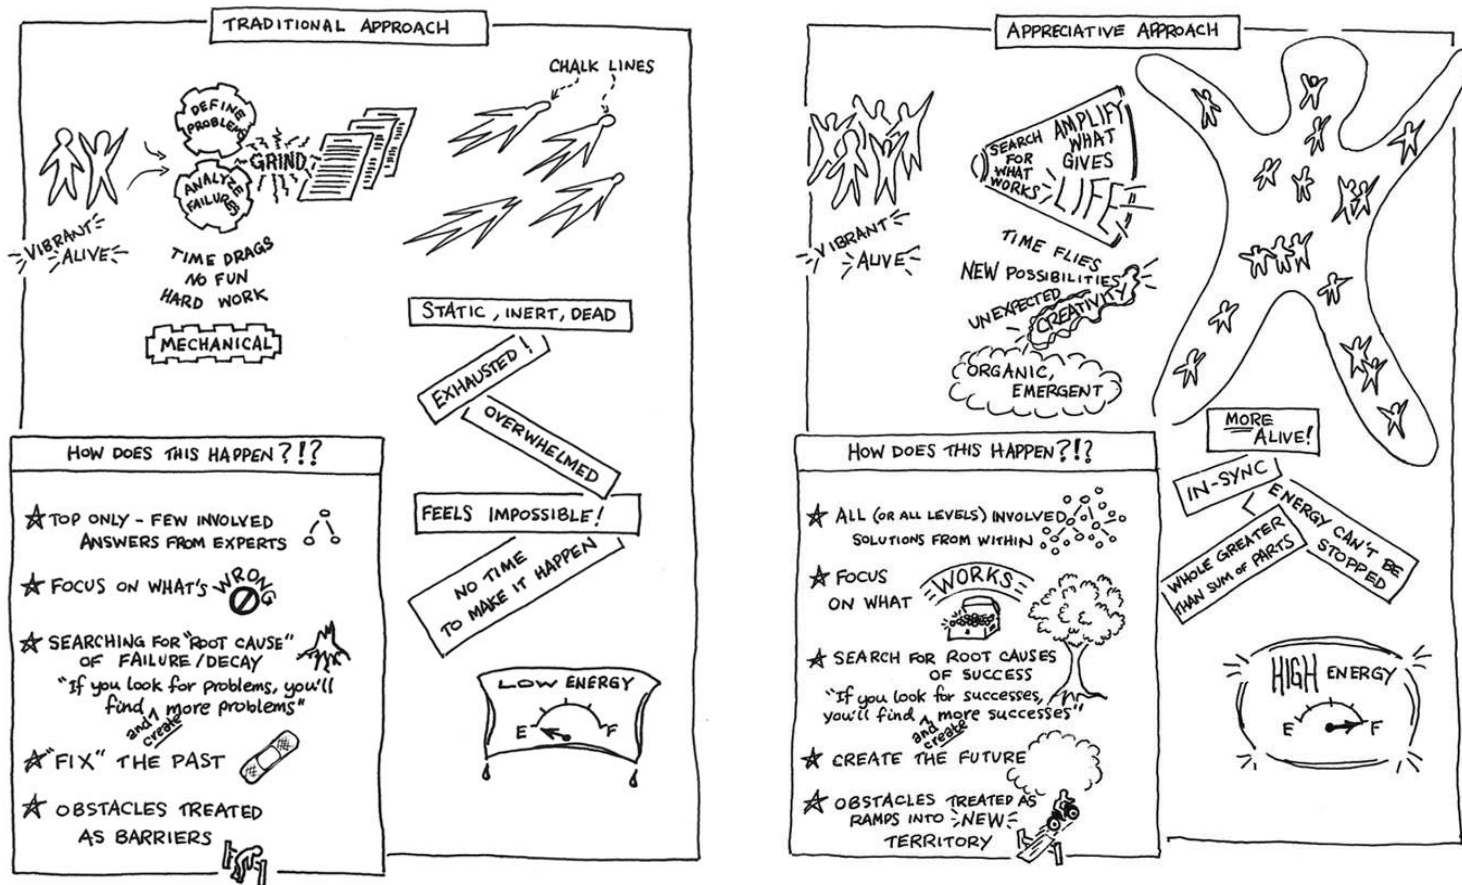 TRADITIONAL APPROACH
CHALK LINES
DEFINE
PROBLEMS
GRIND
ANALYZE
FAILURES
VIBRANT
ALIVE
TIME DRAGS
NO FUN
HARD WORK
MECHANICAL
STATIC, INERT, DEAD
EXHAUSTED!
OVERWHELMED
FEELS IMPOSSIBLE!
NO TIME
TO MAKE IT HAPPEN
LOW ENERGY
E F
HOW DOES THIS HAPPEN?!?
TOP ONLY - FEW INVOLVED
ANSWERS FROM EXPERTS
FOCUS ON WHAT'S WRONG
SEARCHING FOR "ROOT CAUSE"
OF FAILURE/DECAY
"If you look for problems, you'll
find ^ more problems"
and
create
"FIX" THE PAST
OBSTACLES TREATED
AS BARRIERS
APPRECIATIVE APPROACH
SEARCH
FOR
WHAT
WORKS
AMPLIFY
WHAT
GIVES
LIFE
VIBRANT
ALIVE
TIME FLIES
NEW POSSIBILITIES
UNEXPECTED
CREATIVITY
ORGANIC,
EMERGENT
MORE
ALIVE!
IN-SYNC
ENERGY CAN'T BE
STOPPED
WHOLE GREATER
THAN SUM OF PARTS
HIGH ENERGY
E F
HOW DOES THIS HAPPEN?!?
ALL (OR ALL LEVELS) INVOLVED
SOLUTIONS FROM WITHIN
FOCUS
ON WHAT WORKS
SEARCH FOR ROOT CAUSES
OF SUCCESS
"If you look for successes,
you'll find ^ more successes"
and
create
CREATE THE FUTURE
OBSTACLES TREATED AS
RAMPS INTO NEW
TERRITORY